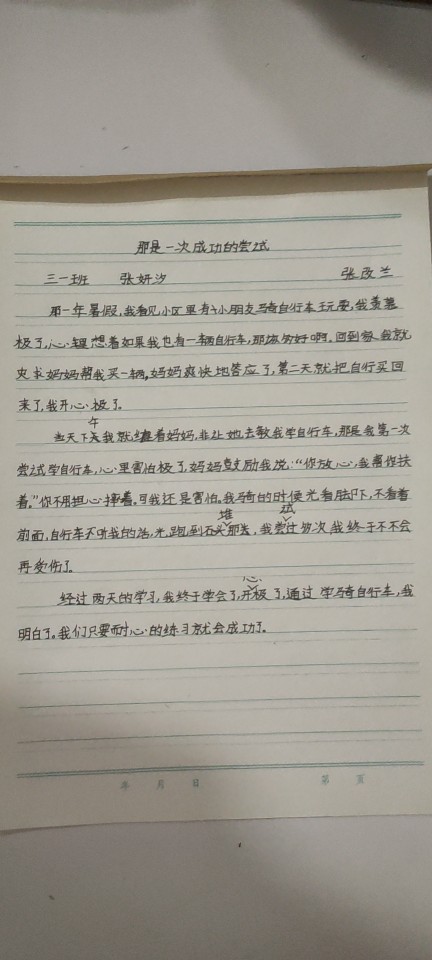 那是一次成功的尝试
三一班 张妍汐 张改兰
那一年暑假，我看见小区里有个小朋友骑自行车玩耍，我羡慕
极了，心里想着如果我也有一辆自行车，那该多好啊。回到家我就
央求妈妈帮我买一辆，妈妈爽快地答应了，第二天就把自行买回
来了，我开心极了。
午
当天下我就缠着妈妈，非让她去教我学自行车，那是我第一次
尝试学自行车，心里害怕极了，妈妈鼓励我说：“你放心，我帮你扶
着。”你不用担心掉着。可我还是害怕。我骑的时候光看脚下，不看着
堆 试
前面，自行车不听我的话，光跑到石头那去，我尝过多次我终于不会
再受伤了。
心
经过两天的学习，我终于学会了，开极了，通过学骑自行车，我
明白了。我们只要耐心的练习就会成功了。
年 月 日 第 页